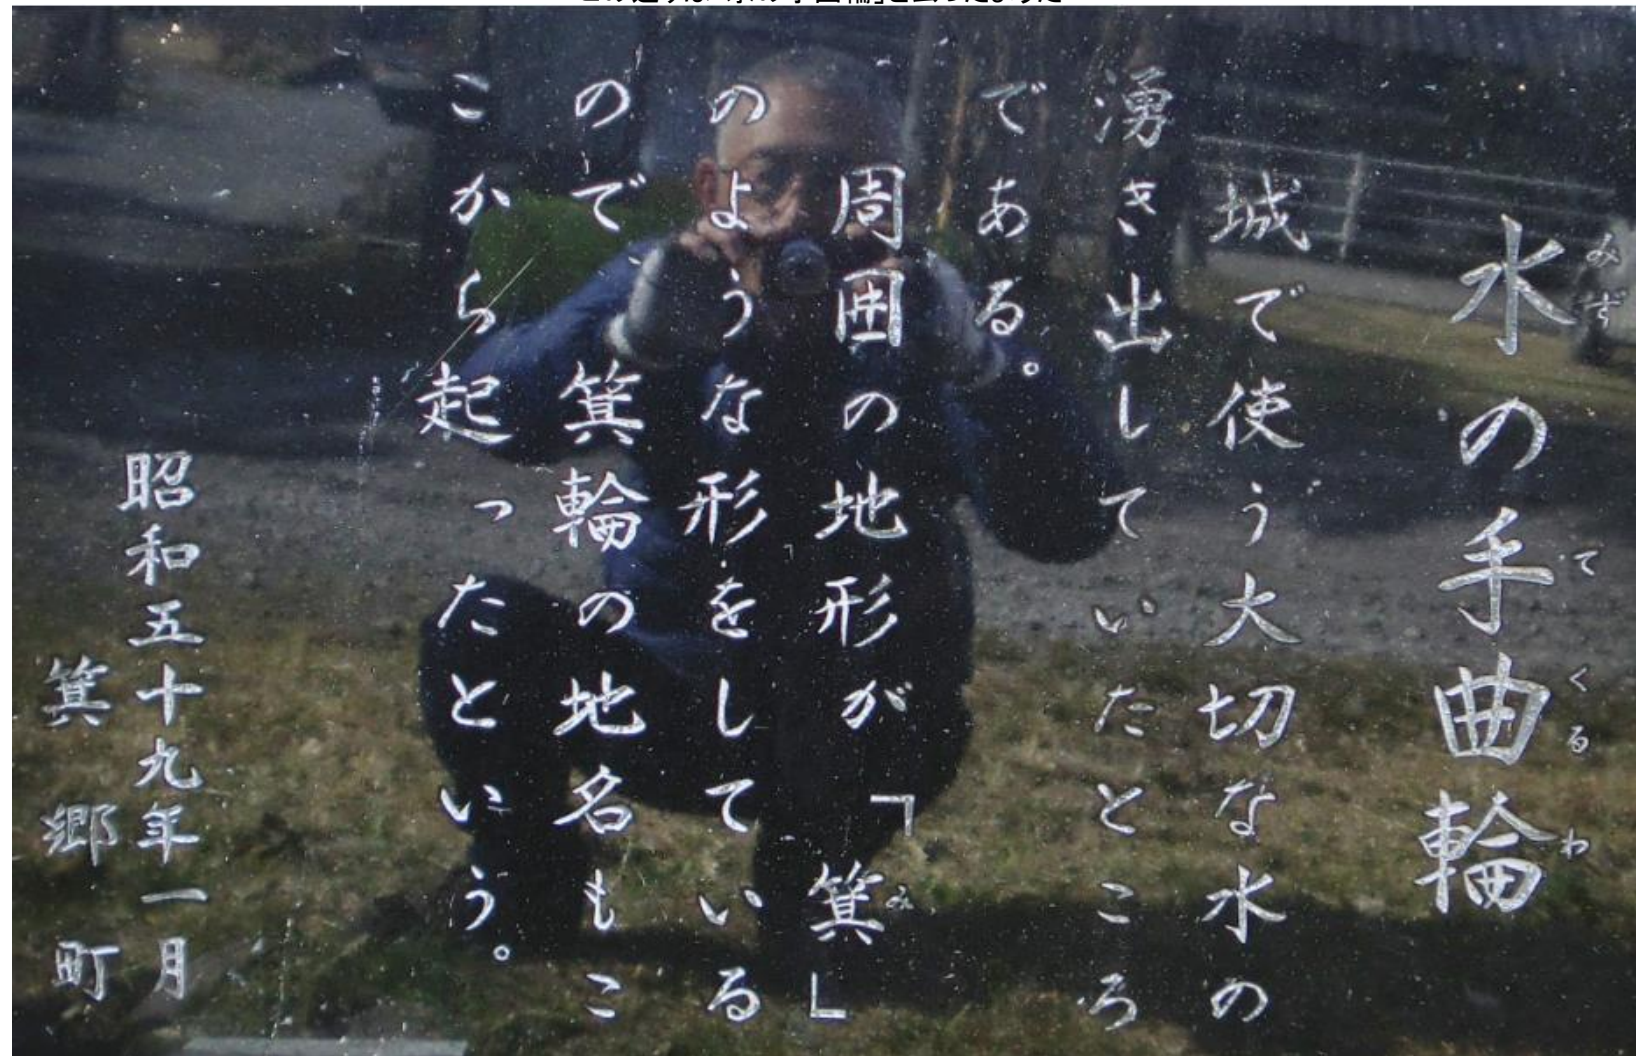 水の手曲輪
みず て くる わ
城で使う大切な水の
湧き出していたところ
である。
周囲の地形が「箕」
み
のような形をしている
ので、箕輪の地名もこ
こから起ったという。
昭和五十九年一月
箕郷町